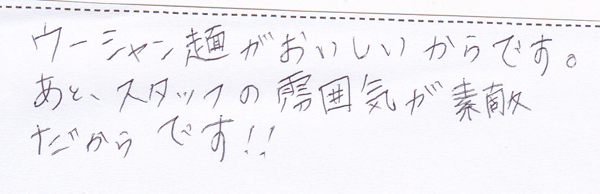 ウーシャン麺がおいしいからです。
あと、スタッフの雰囲気が素敵
だからです!!